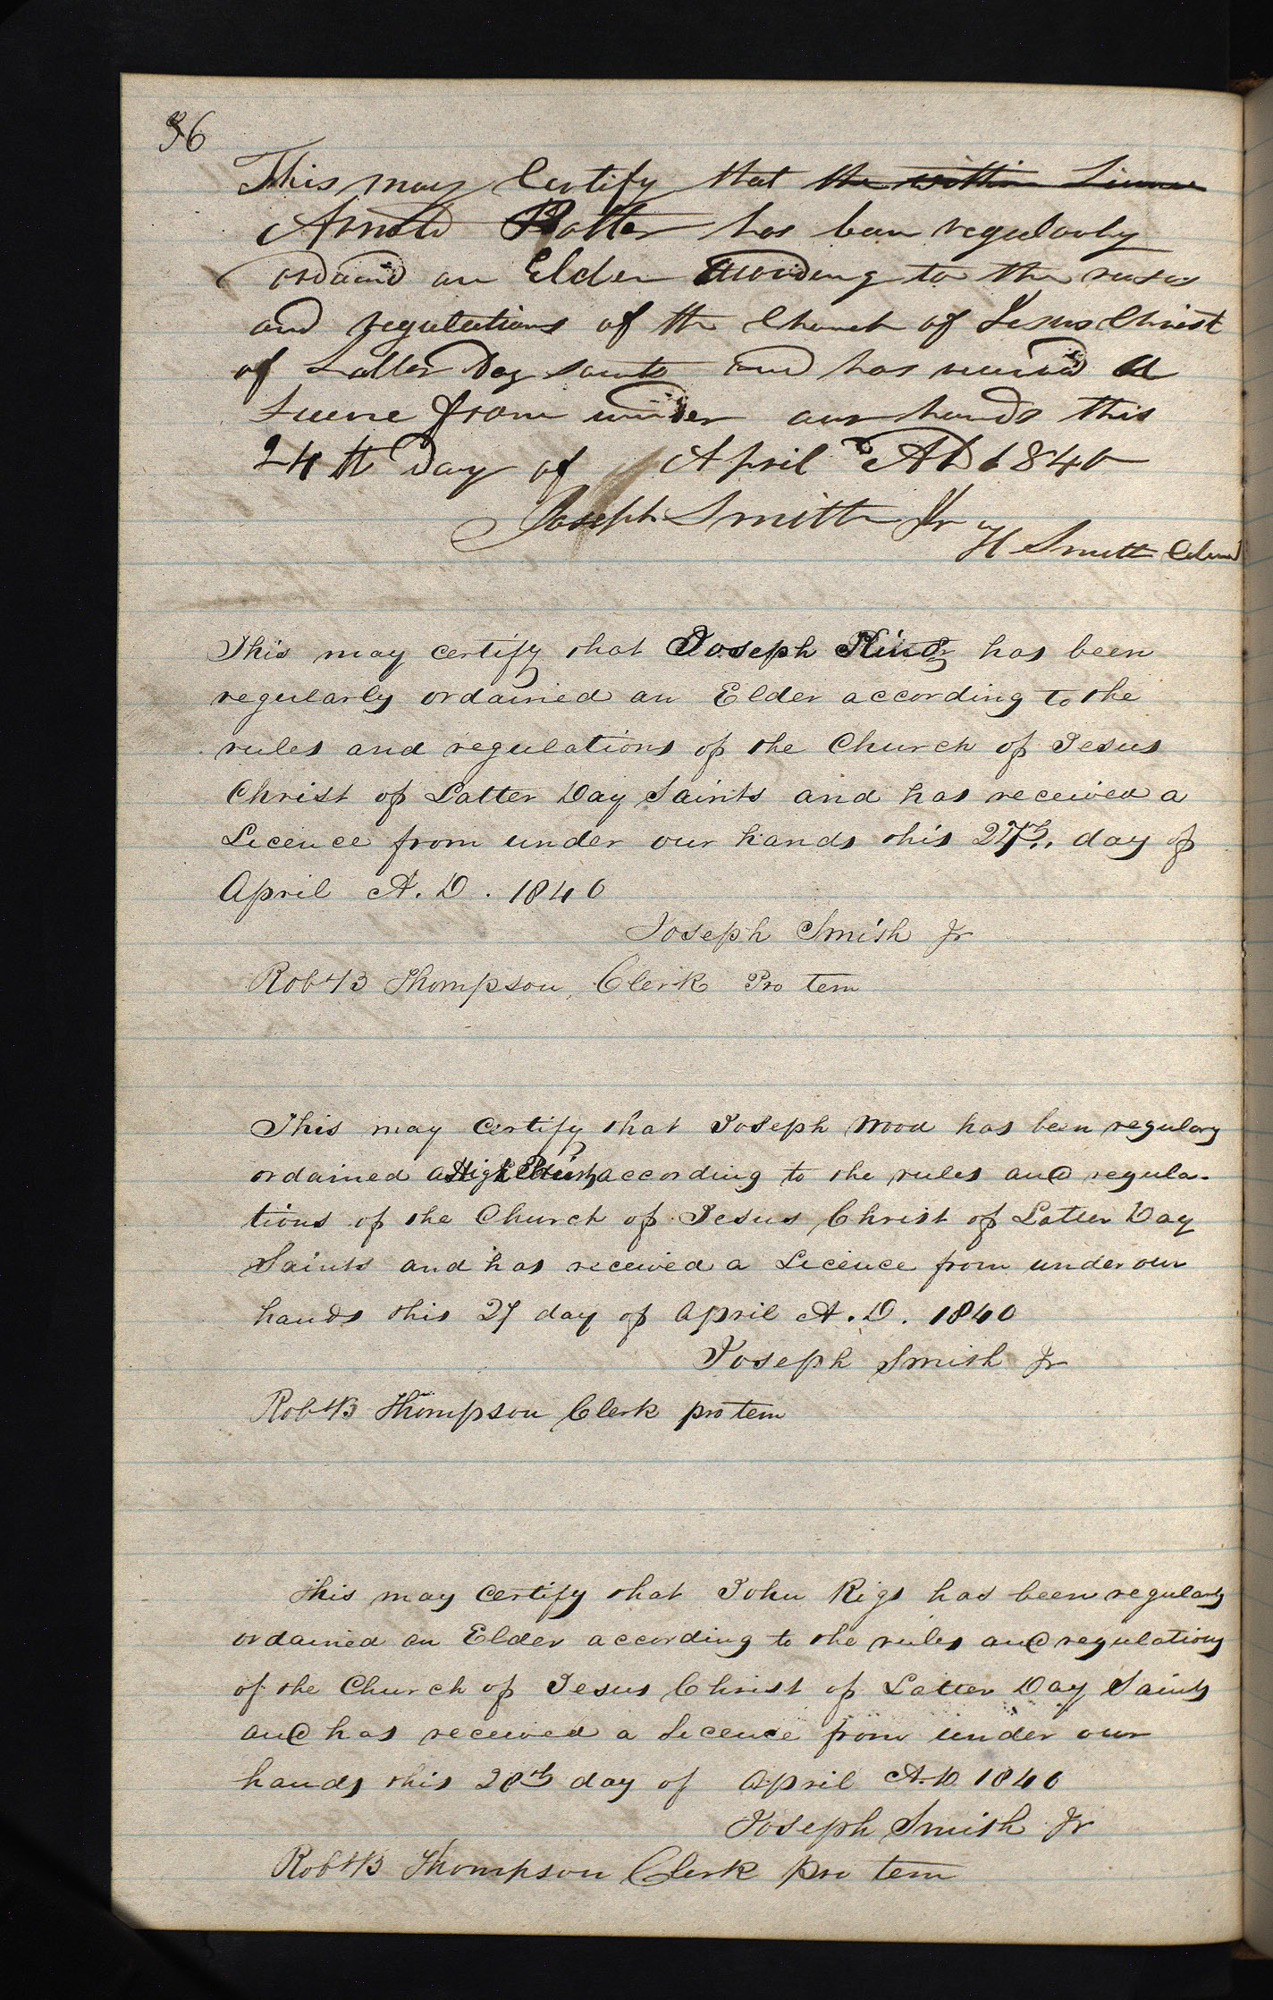 86
This may Certify that the within Licence
Arnold Potter has been regularly
ordained an Elder According to the rules
and regulations of the Church of Jesus Christ
of Latter Day saints and has received a
Licence from under our hands this
24th Day of April AD 1840
Joseph Smith Jr
H Smith
This may certify that Joseph has been
regularly ordained an Elder according to the
rules and regulations of the Church of Jesus
Christ of Latter Day Saints and has received a
Licence from under our hands this 27th. day of
April A. D. 1840
Joseph Smith Jr
Robt B Thompson, Clerk Pro tem
This may certify that Joseph Wood has been regulary
ordained a High Priest according to the rules and regula-
tions of the Church of Jesus Christ of Latter Day
Saints and has received a Licence from under our
hands this 27 day of April A. D. 1840
Joseph Smith Jr
Robt B Thompson Clerk pro tem
This may certify that John Rigs has been regularly
ordained an Elder according to the rules and regulations
of the Church of Jesus Christ of Latter Day Saints
and has received a Licence from under our
hands this 28th day of April A.D 1840
Joseph Smith Jr
Robt B Thompson Clerk pro tem